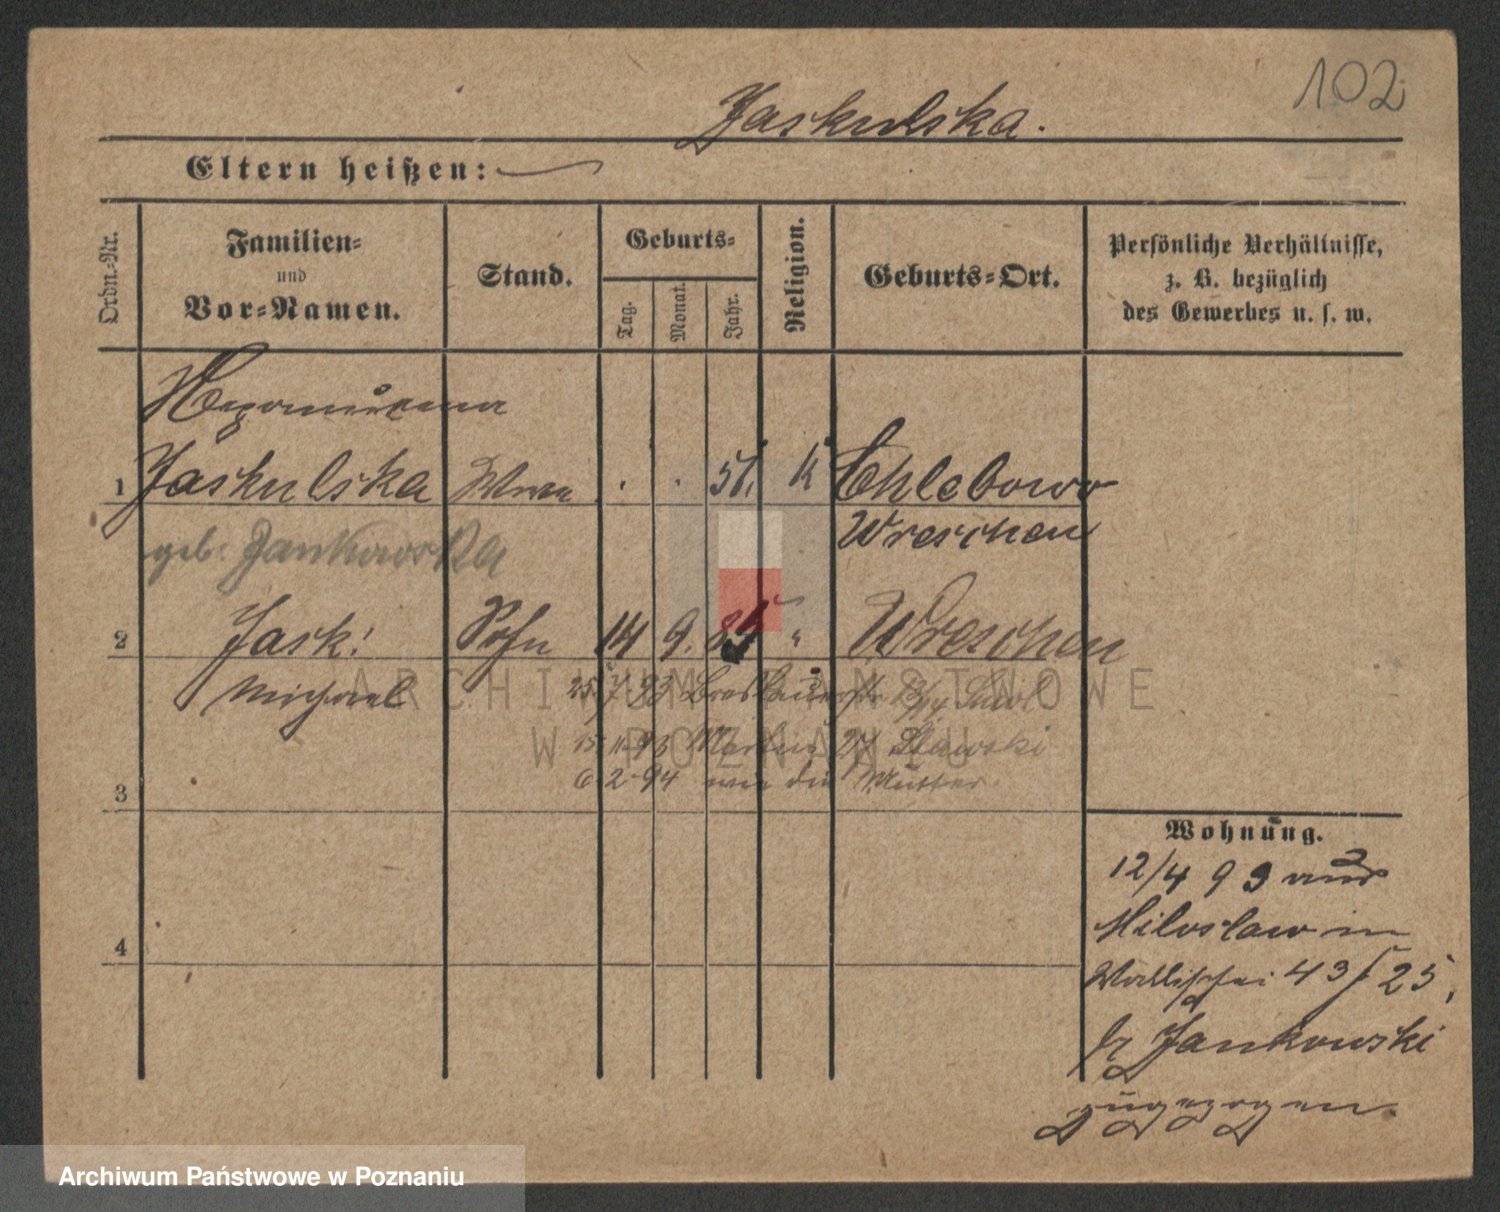 102
Jaskulska.
Eltern heißen:
Ordn.-Nr.
Familien-
und
Vor-Namen.
Stand.
Geburts-
Tag.
Monat.
Jahr.
Religion.
Geburts-Ort.
Persönliche Verhältnisse,
z. B. bezüglich
des Gewerbes u. s. w.
1 Jaskulska Wwe . . 51. K Chlebowo
geb. Jankowska Wreschen
2 Jask: Sohn 14 9. 85 " Wreschen
Michael 25/7 93 Breslauerstr
15 11 93 Martin 27 Slawski
6 2 94 wie die Mutter
3
4
Wohnung.
12/4 93 aus
Miloslaw in
Wallischei 43 / 25,
Jankowski
zugezogen.
ARCHIWUM PAŃSTWOWE
W POZNANIU
Archiwum Państwowe w Poznaniu